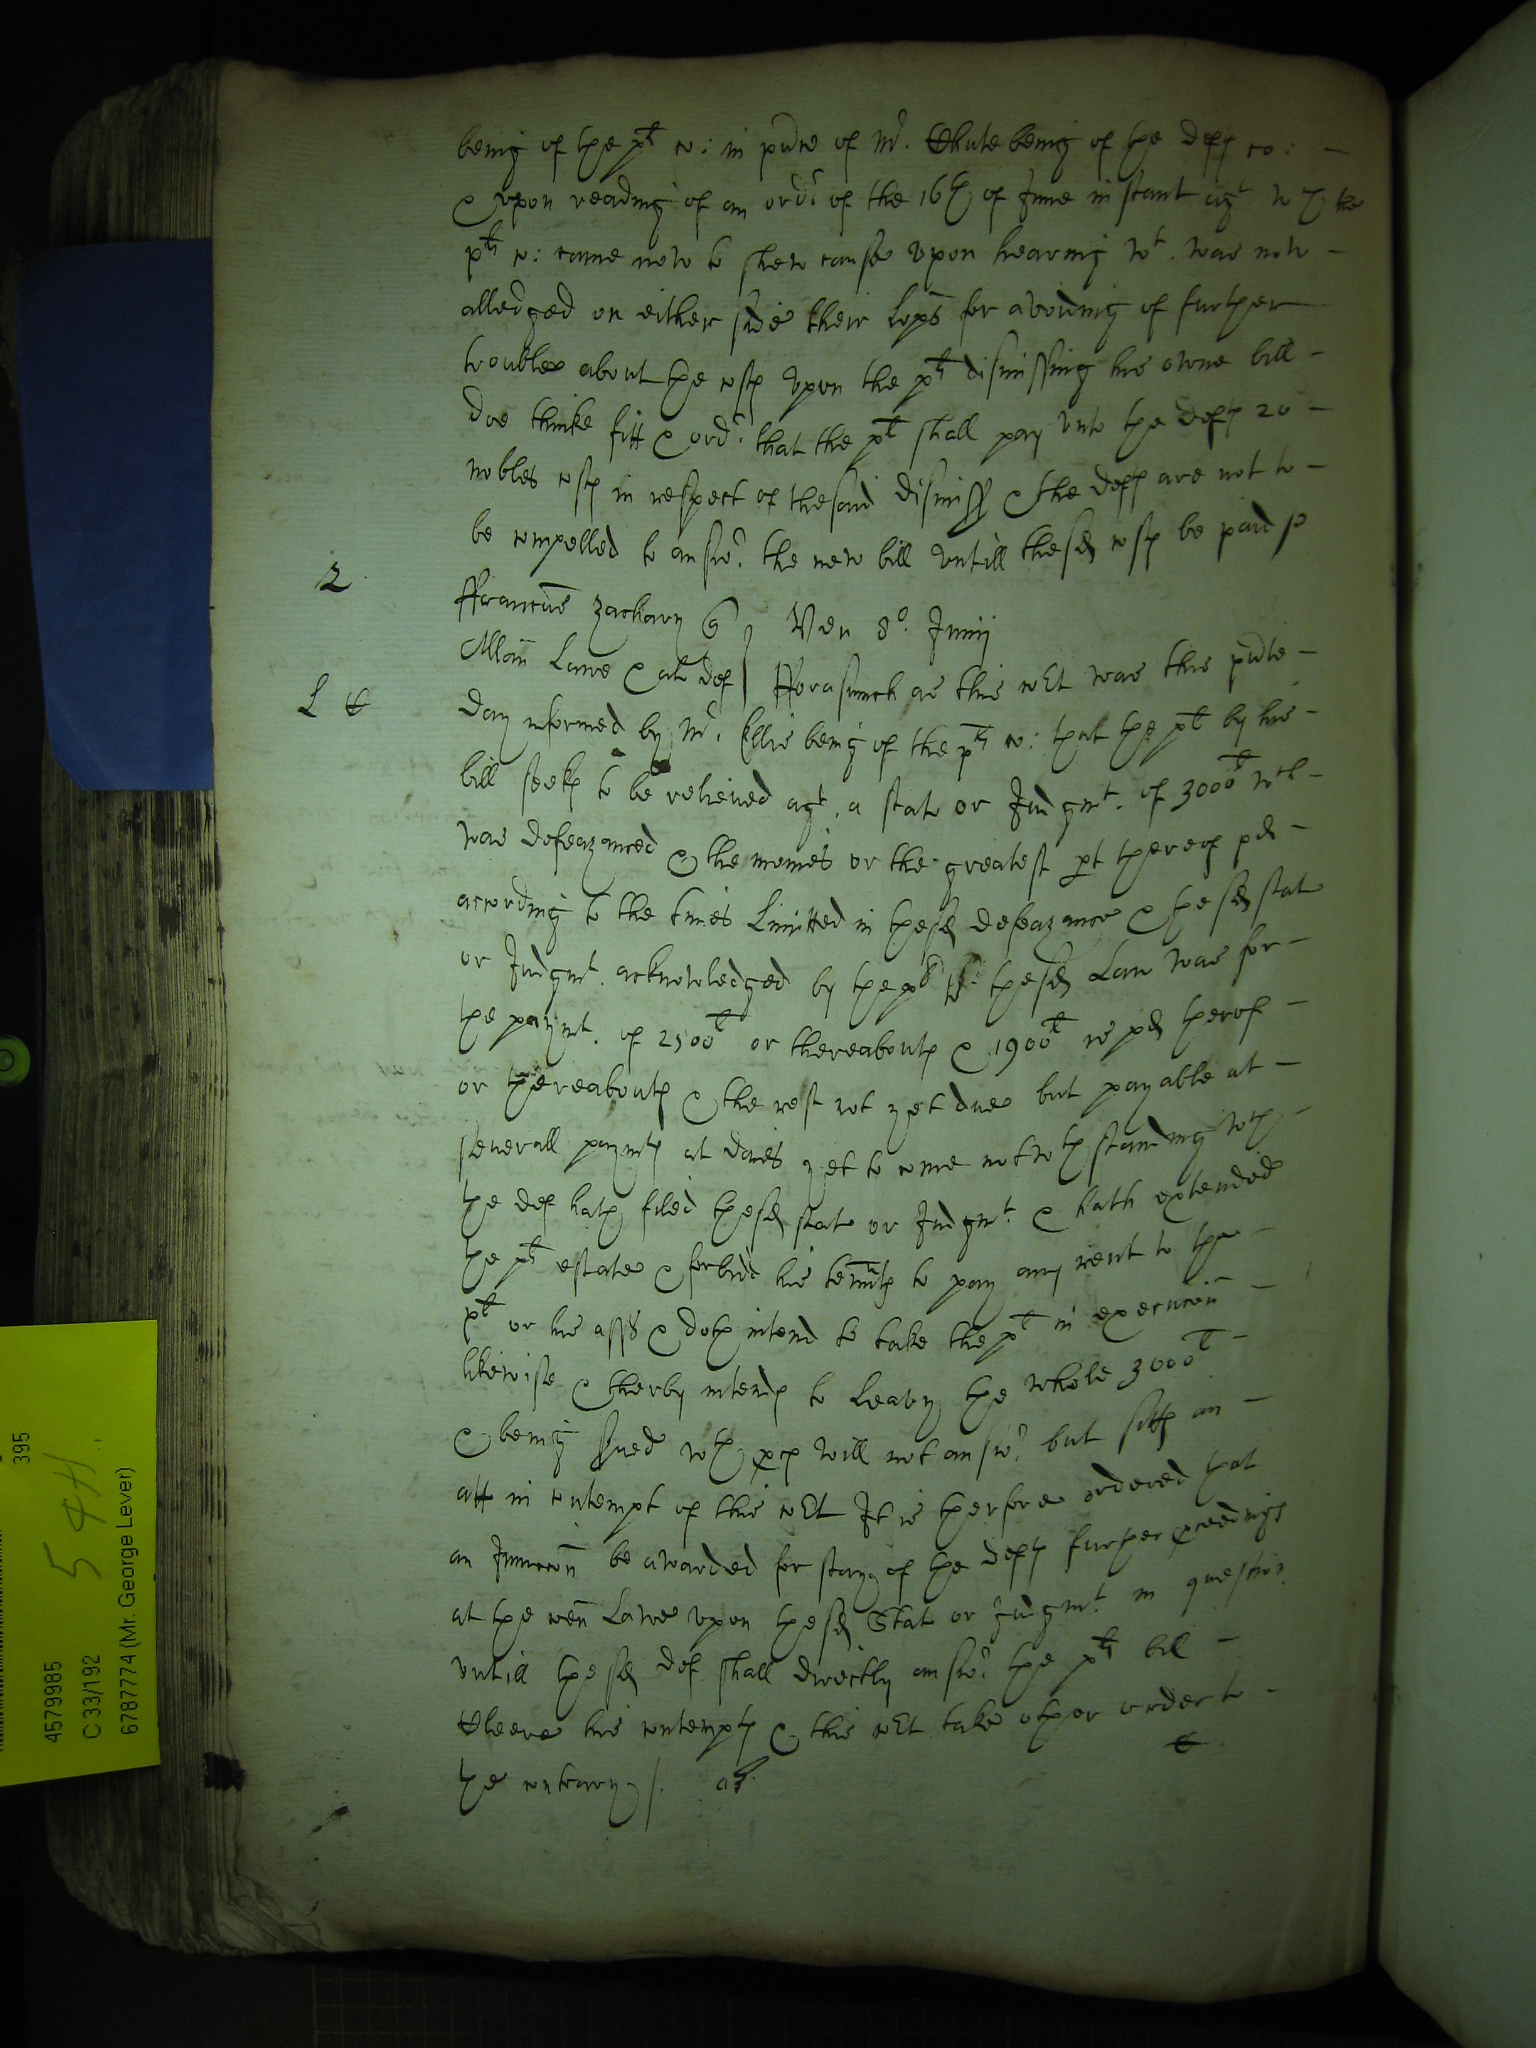 being of the plt co: in pñce of Mr. Chute being of the defts co:
& upon reading of an ordr. of the 16th of June instant agt wch the
plts co: came now to shew cause upon hearing wt. was now
alledged on either side their Lopps for avoiding of further
troubles about the costs upon the plts dismissing his owne bill
doe thinke fitt & ordr. that the plt shall pay unto the defts 20
nobles costs in respect of the said dismiss & the defts are not to
be compelled to answr. the new bill untill the sd costs be paid
2
Franciscus Zachary
Ven 8o. Junij
Allan Lawe & al def
Forasmuch as this cort was this pñte
L
day informed by Mr. Ellis being of the plts co: that the plt by his
bill seeks to be relieved agt. a stat or Judgmt. of 3000l wch
was defeazanced & the monies or the greatest pt thereof pd
according to the times limitted in the sd defeazance & the sd stat
or Judgmt. acknowledged by the plt to the sd Law was for
the paymt. of 2500l or thereabouts & 1900l is pd therof
or thereabouts & the rest not yet due but payable at
severall paymts at daies yet to come notwthstanding wch
the def hath filed the sd stat or Judgmt. & hath extended
the plts estate & forbidd his tennts to pay any rent to the
plt or his asss & doth intend to take the plt in execucon
likewise & therby intends to leavy the whole 3000l
& being sued wth pces will not answr. but sitts an
att in contempt of this cort It is therfore ordered that
an Junccon be awarded for stay of the defts further pceedings
at the comon Lawe upon the sd Stat or Judgmt. in question
untill the sd def shall directly answr. the plts bill
cleere his contempts & this cort take other order to
the contrary
395
54H
4579985
C 33/192
6787774 (Mr. George Lever)